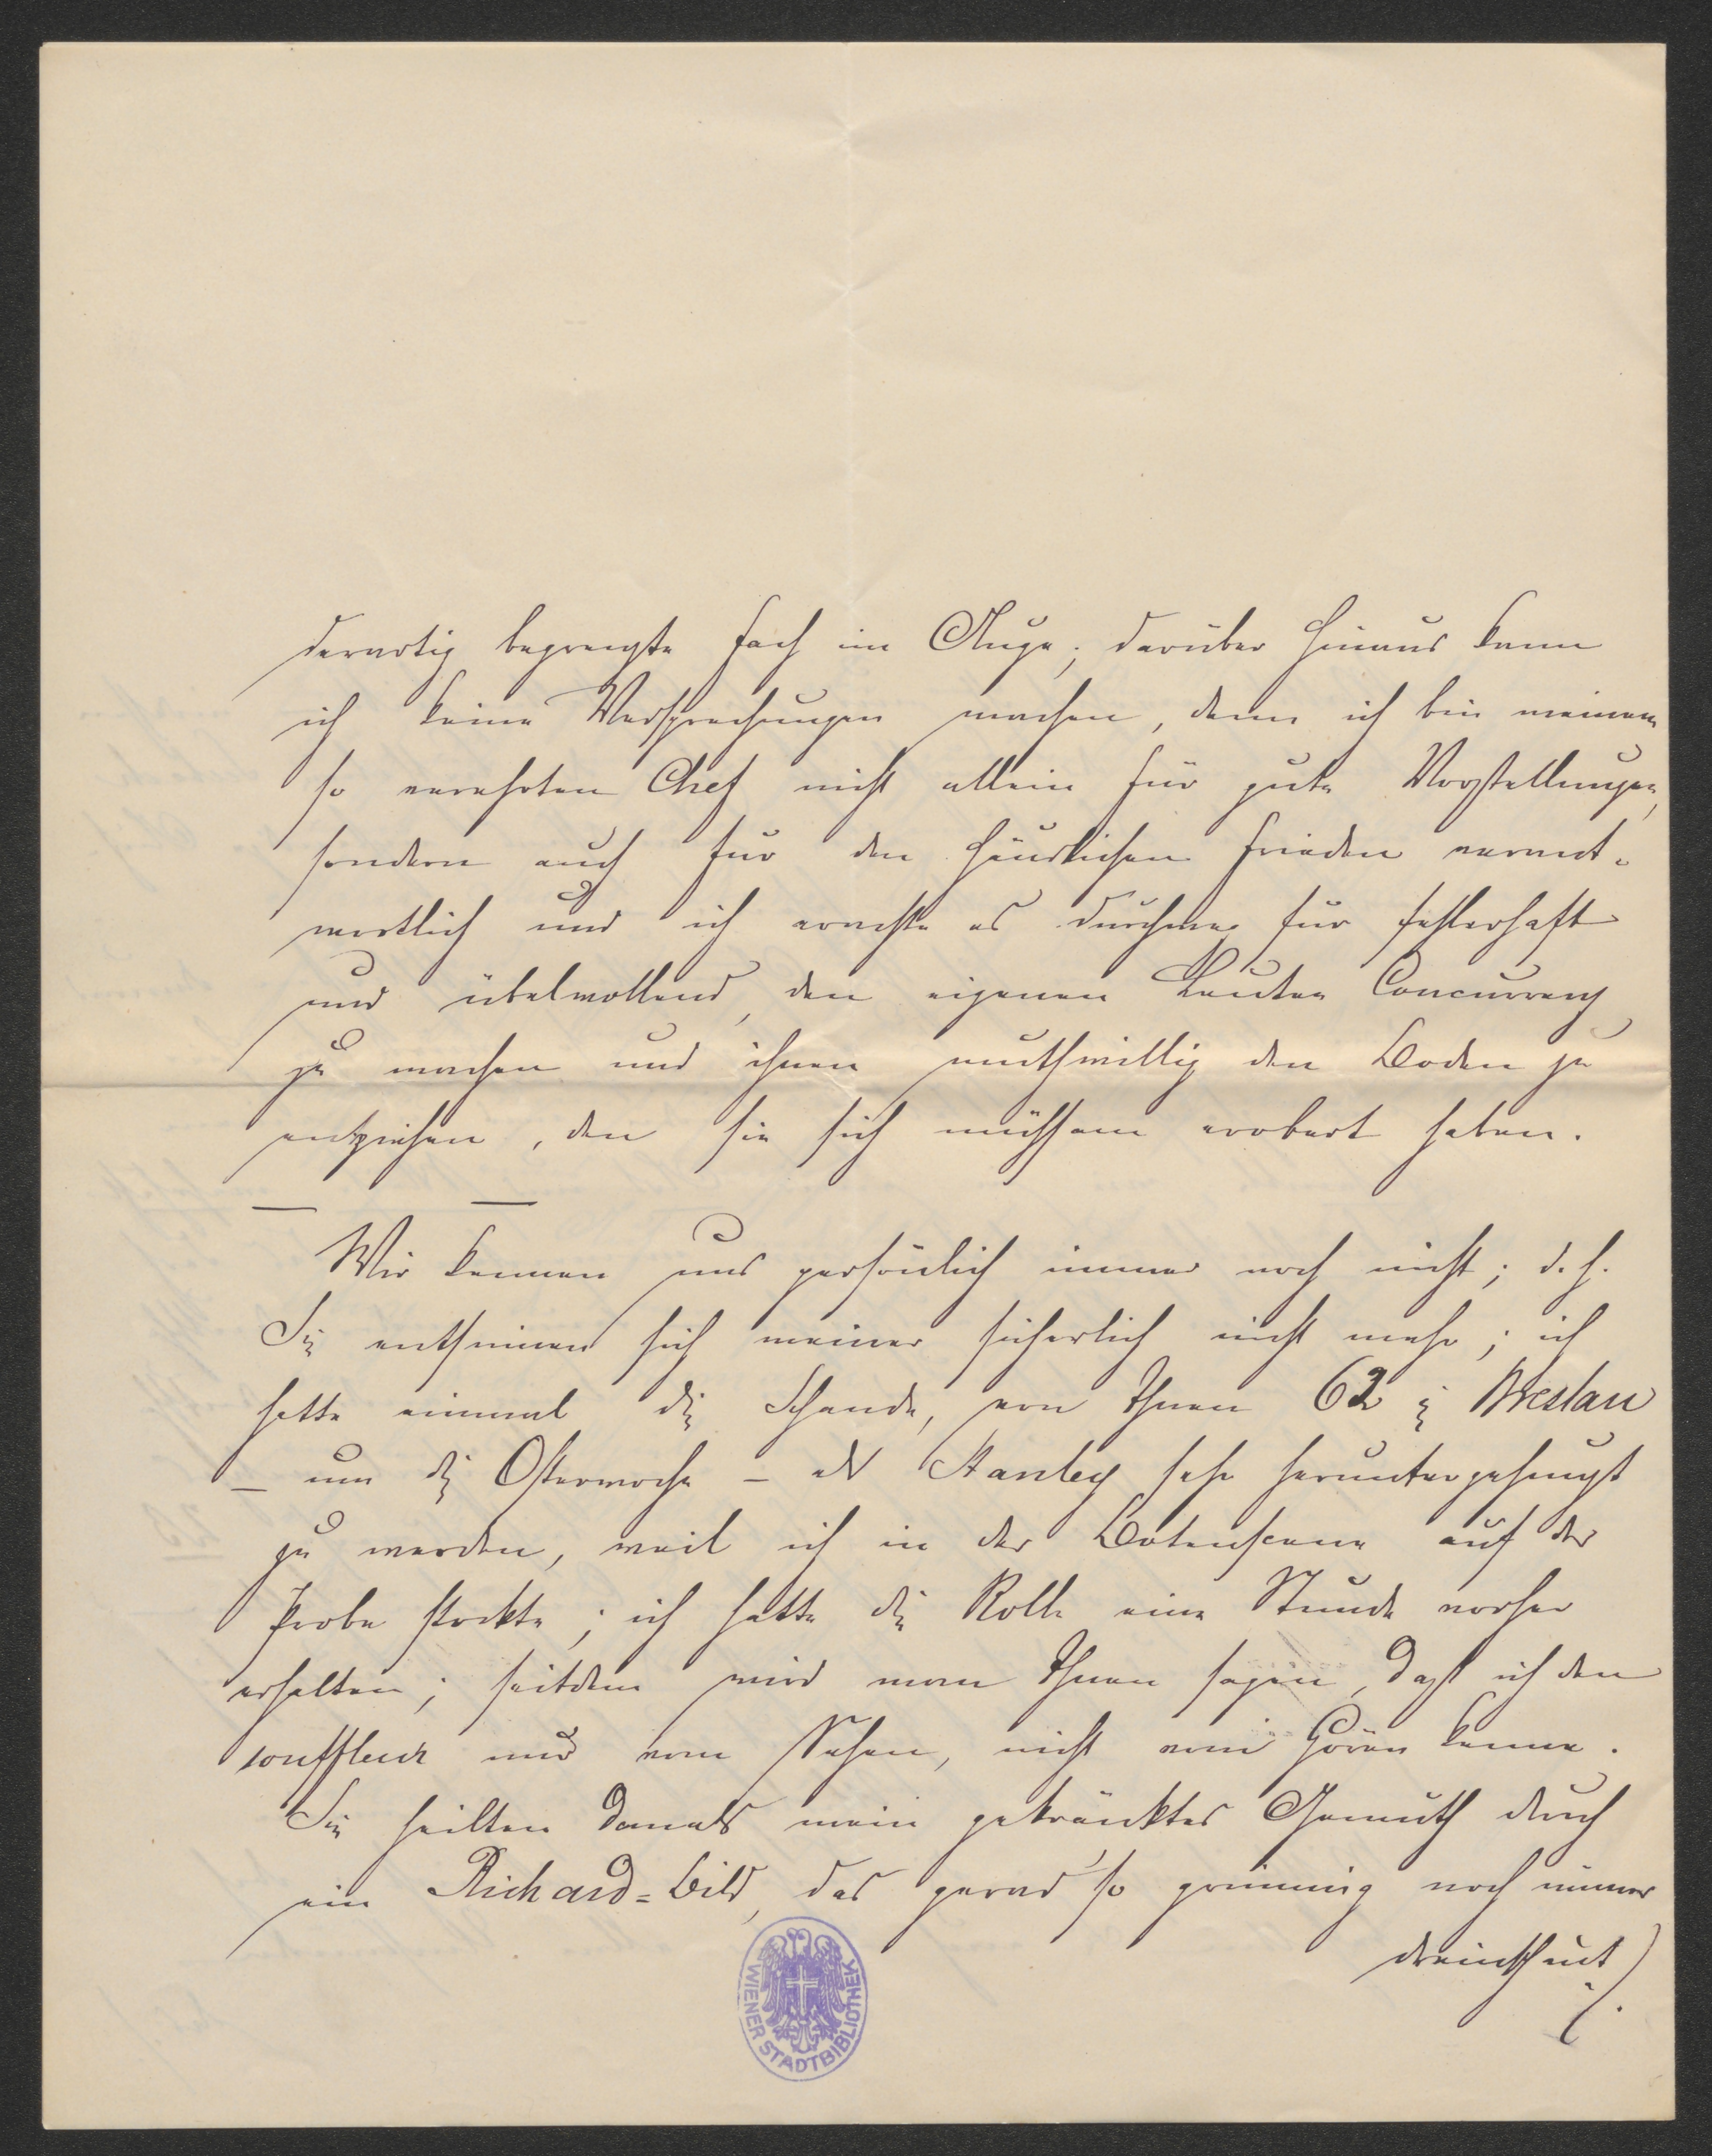 derartig begrenzte Fach im Auge; darüber hinaus kann
ich keine Versprechungen machen, denn ich bin meinem
so verehrten Chef nicht allein für gute Vorstellungen,
sondern auch für den häuslichen Frieden verant-
wortlich und ich erachte es durchweg für fehlerhaft
und übelwollend, den eigenen Leuten Concurrenz
zu machen und ihnen muthwillig den Boden zu
entziehen, den sie sich mühsam erobert haben.
— —
Wir kennen uns persönlich immer noch nicht; d. h.
Sie entsinnen sich meiner sicherlich nicht mehr; ich
hatte einmal die Schande, von Ihnen 62 in Breslau
– um die Osterwoche – als Stanley sehr heruntergehunzt
zu werden, weil ich in der Botenscene auf der
Probe stockte; ich hatte die Rolle eine Stunde vorher
erhalten; seitdem wird man Ihnen sagen, daß ich den
souffleur nur vom Sehen, nicht vom Hören kenne.
Sie heilten damals mein gekränktes Gemüth durch
ein Richard-Bild, das gerad' so grimmig noch immer
dreinschaut
WIENER STADTBIBLIOTHEK